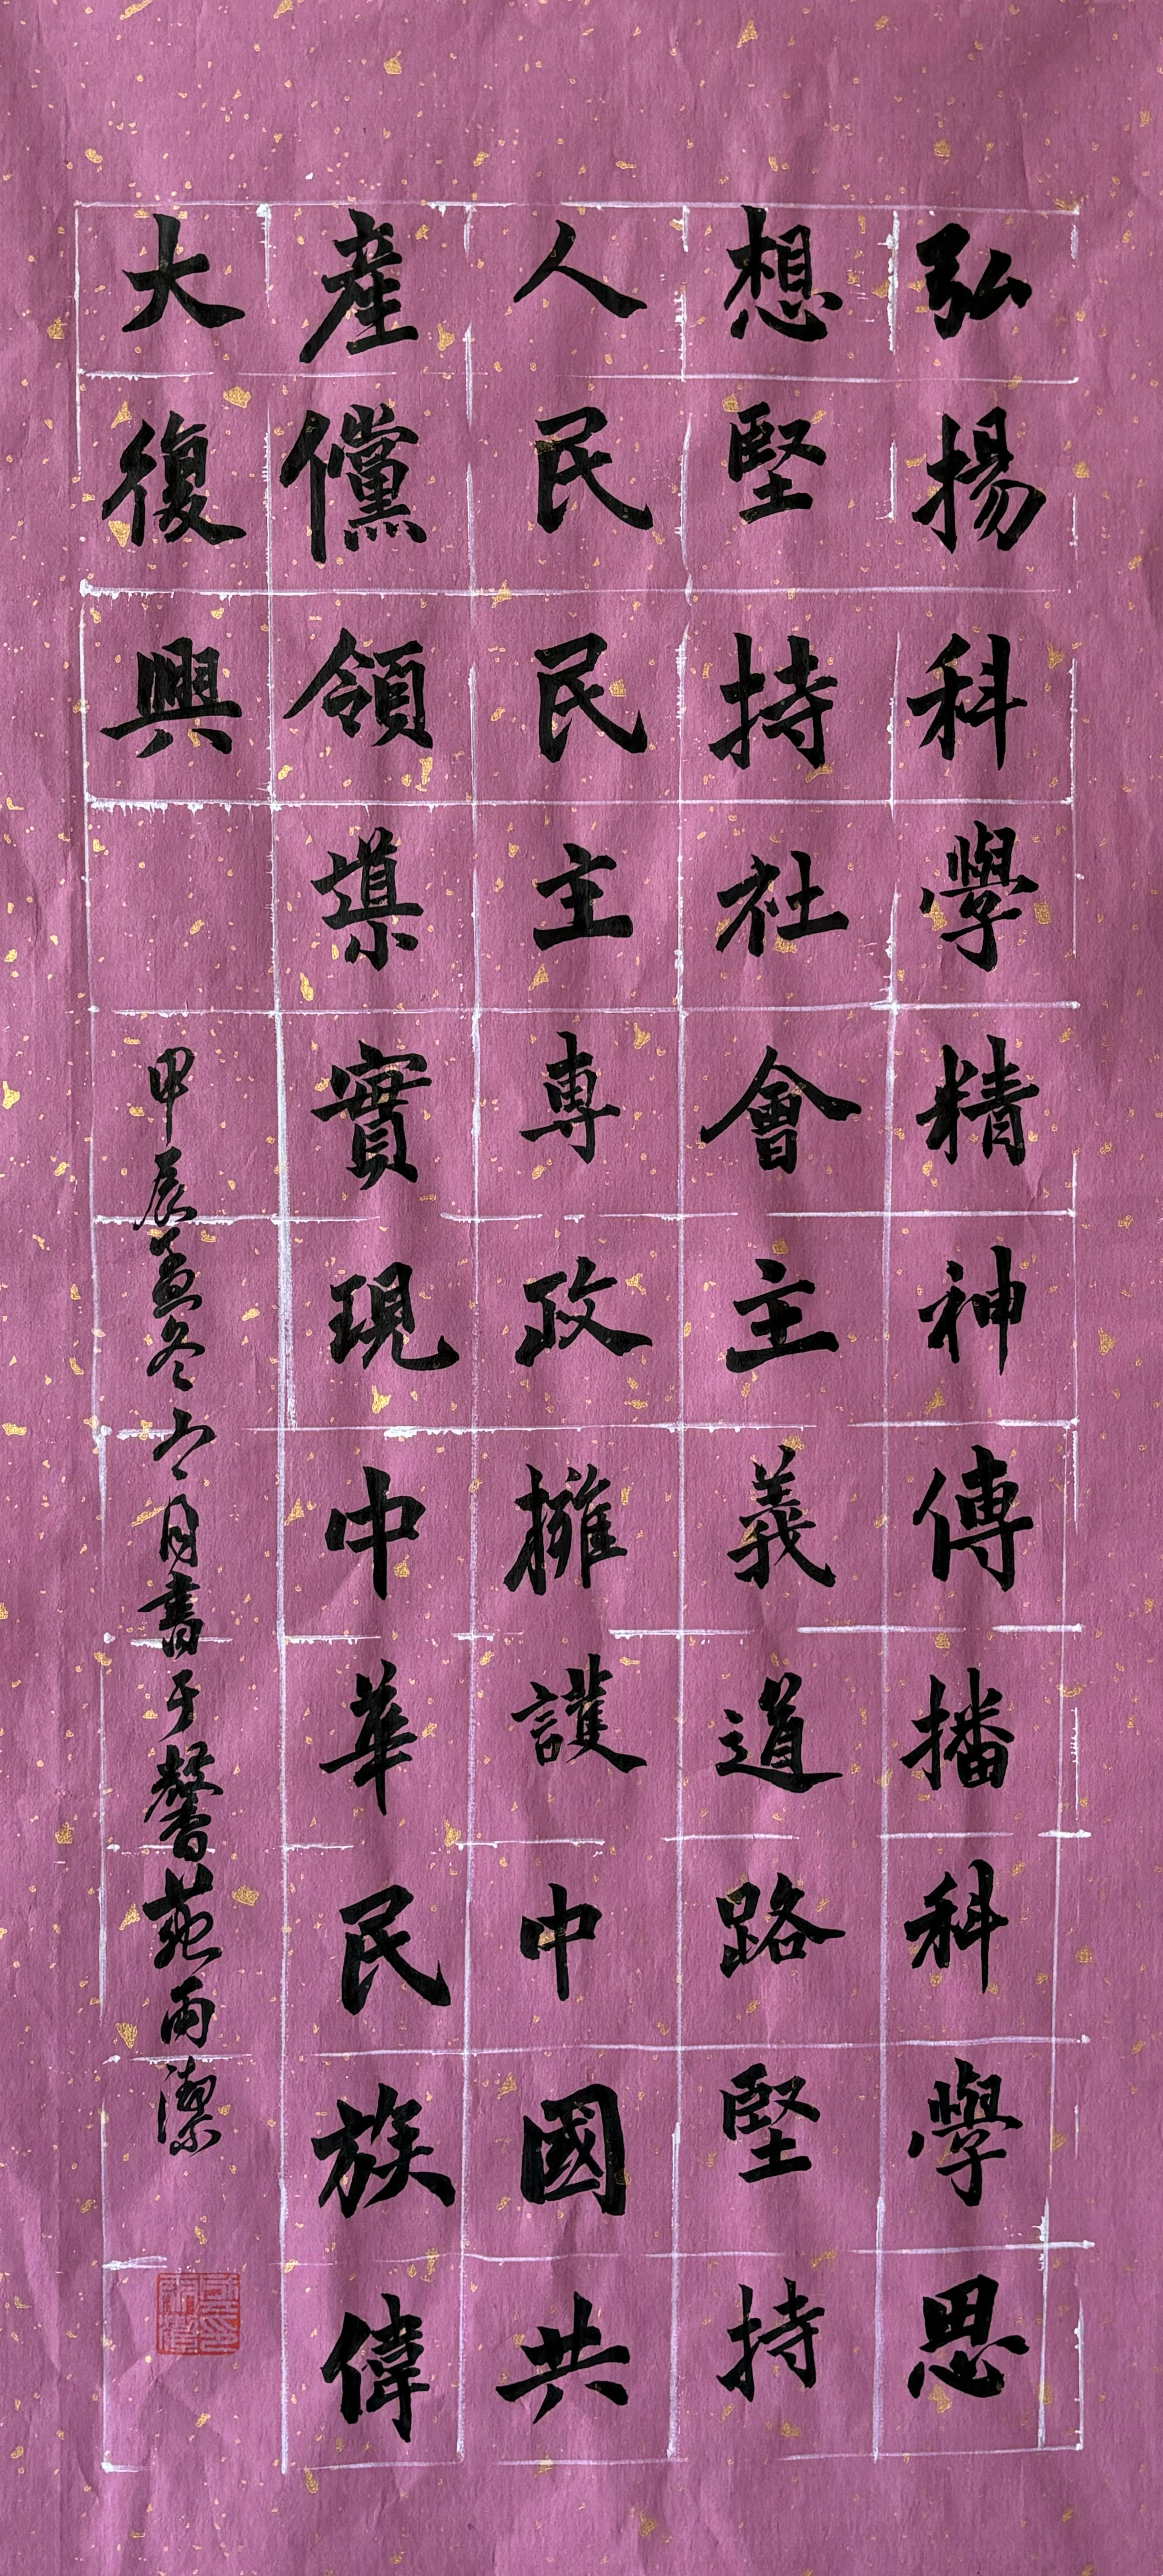 弘揚科學精神傳播科學思
想堅持社會主義道路堅持
人民民主專政擁護中國共
産儻領導實現中華民族偉
大復興
甲辰孟冬上月書于馨苑雨潔